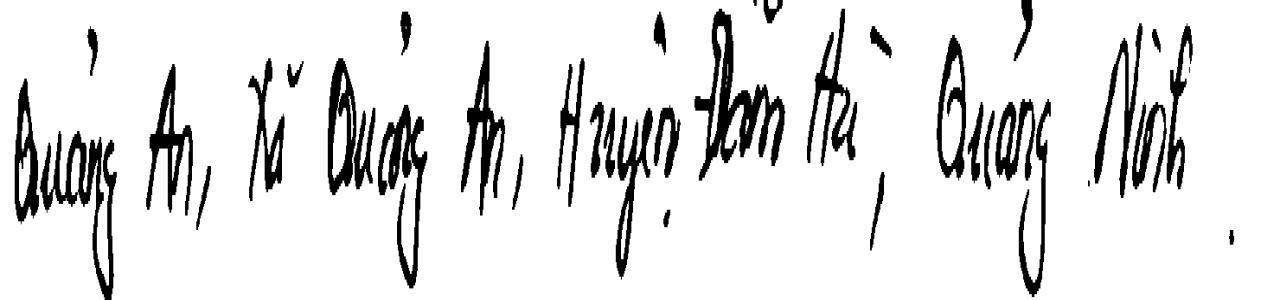 Quảng An, Xã Quảng An, Huyện Đầm Hà, Quảng Ninh.